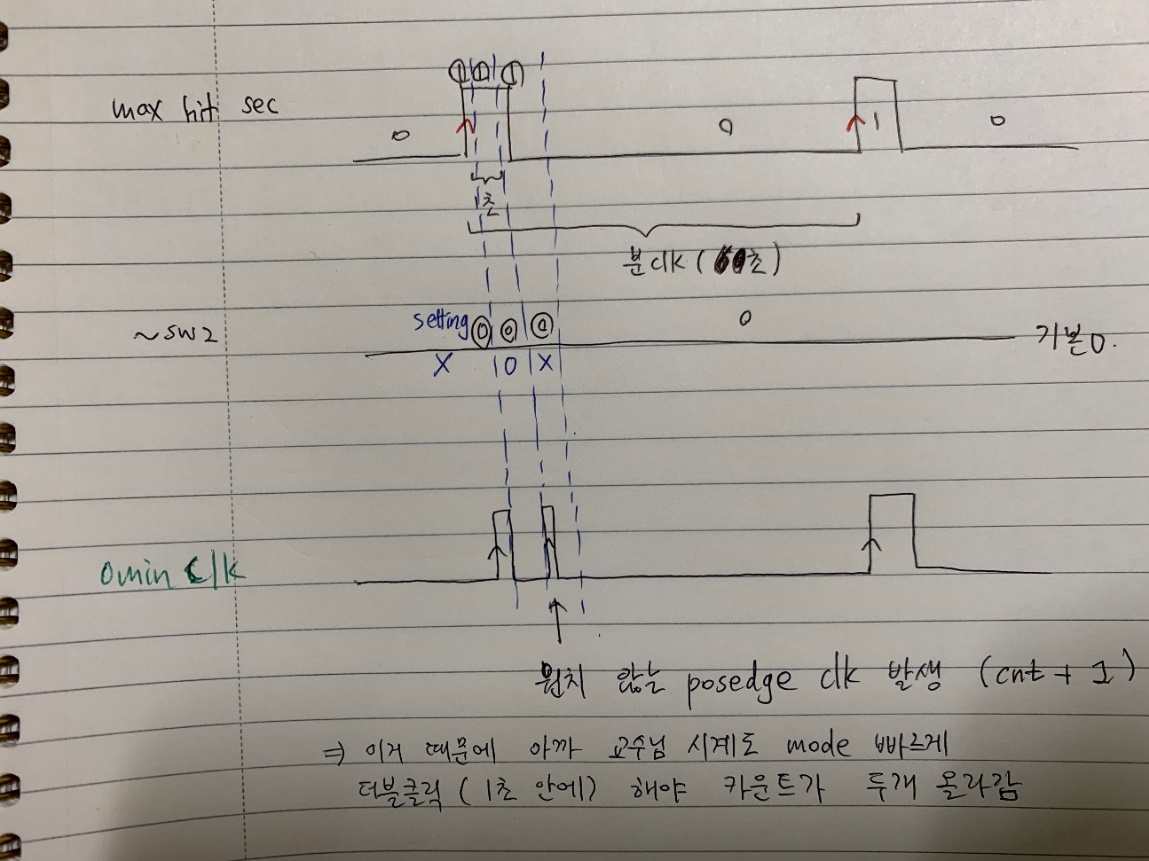 ① ① ①
max hit sec
0 0 1 0
1초
분clk ( 초)
setting ⓪ ⓪ ⓪ 0
~SW2 기본 0.
X 0 X
omin clk
원치 않는 posedge clk 발생 (cnt + 1)
⇒ 이거 때문에 아까 교수님 시계도 mode 빠르게
더블클릭 ( 1초 안에) 해야 카운트가 두개 올라감